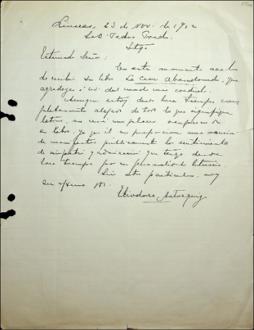 Linares, 23 de Nov. de 1912
Sr. D. Pedro Prado.
Stgo.
Estimado Señor:
En este momento acabo
de recibir su libro La Casa Abandonada, que
agradezco a Ud. del modo mas cordial.
Aunque estoy desde hace tiempo com-
pletamente alejado de todo lo que signifique
letras, es será un placer ocuparme de
su libro, ya que él me proporciona una manera
de manifestar publicamente los sentimientos
de simpatía y admiracion que tengo desde
hace tiempo por su personalidad literaria
Sin otro particular, soy
su afmo. SS.
Eleodoro Astorquiza